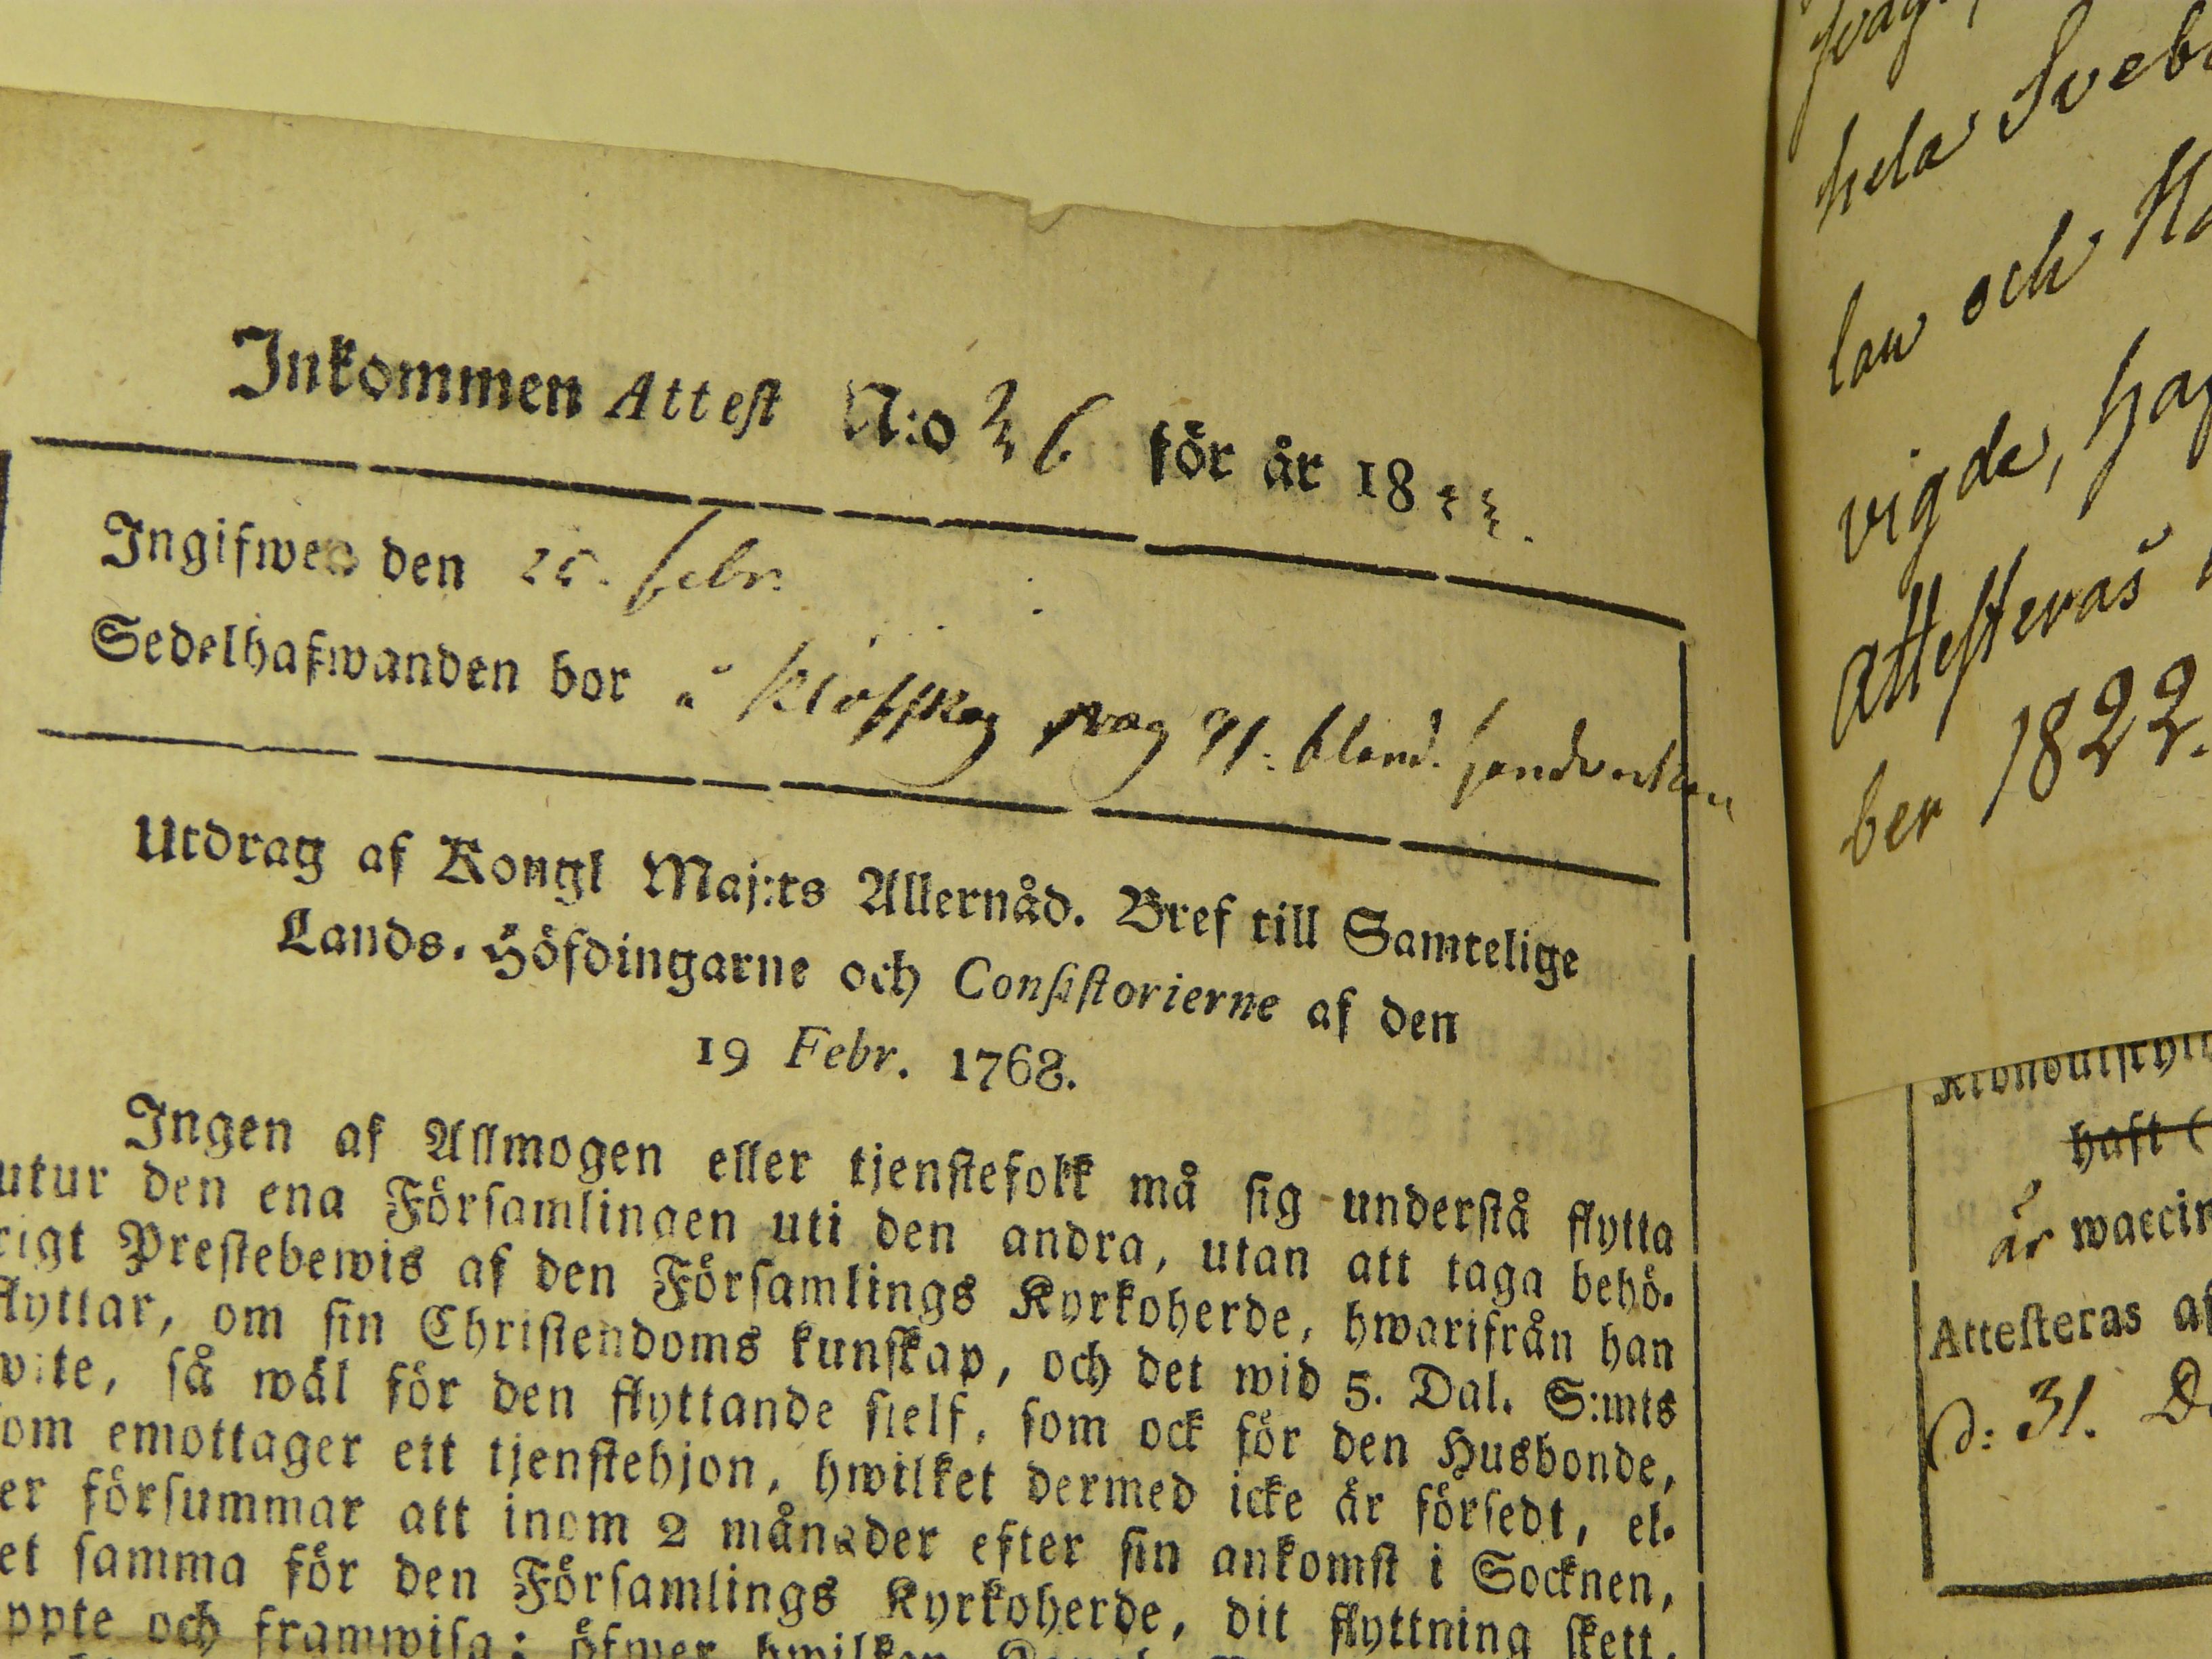 Inkommen Attest N:o 36 för år 1823.
Ingifwen den 25. febr.
Sedelhafwanden bor å pag 91. bland.
Utdrag af Kongl Maj:ts Allernåd. Bref till Samtelige
Lands-Höfdingarne och Consistorierne af den
19 Febr. 1768.
Ingen af Allmogen eller tjenstefolk må sig understå flytta
utur den ena Församlingen uti den andra, utan att taga behö-
rigt Prestebewis af den Församlings Kyrkoherde, hwarifrån han
flyttar, om sin Christendoms kunskap, och det wid 5. Dal. S:mts
wite, så wäl för den flyttande sielf, som ock för den Husbonde,
som emottager ett tjenstehjon, hwilket dermed icke är försedt, el-
er försummar att inom 2 månader efter sin ankomst i Socknen,
et samma för den Församlings Kyrkoherde, dit flyttning skett,
ppte och framwisa; öfwer hwilken
hela
lan och
vigde,
attesteras
ber 1822.
haft
är waccin
Attesteras af
d: 31.